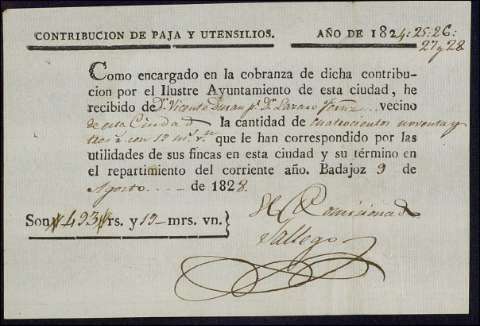 CONTRIBUCION DE PAJA Y UTENSILIOS. AÑO DE 1824:25:26:
27 y 28
Como encargado en la cobranza de dicha contribu-
cion por el Ilustre Ayuntamiento de esta ciudad, he
recibido de Dn. Vicente Duran pr. Dn. Lazaro vecino
de esta Ciudad la cantidad de cuatrocientos noventa y
tres rs. con mrs. vn. que le han correspondido por las
utilidades de sus fincas en esta ciudad y su término en
el repartimiento del corriente año. Badajoz 9 de
Agosto de 1828.
Son 493 rs. y mrs. vn.
El Comisionado
Gallego